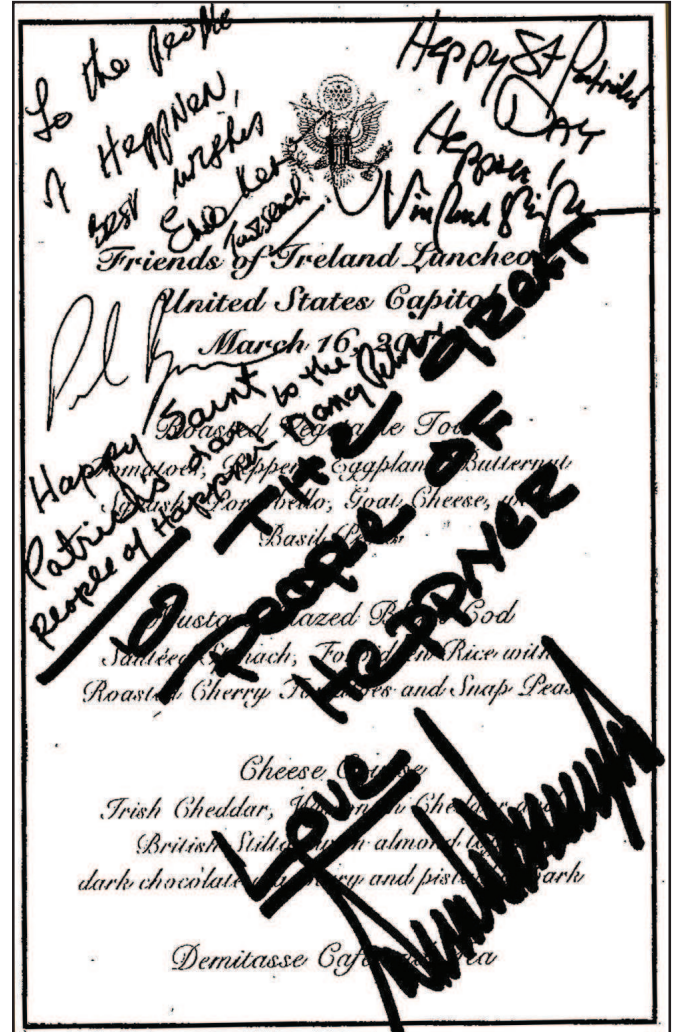 To the people
of Heppner,
Best wishes
Enda Kenny
Taoiseach
Happy St Patrick's
Day
Heppner!
Friends of Ireland Luncheon
United States Capitol
March 16, 20
Happy Saint
Patrick's day to the
people of Heppner Nancy Pelosi
Roasted Vegetable
Tomatoes, Peppers, Eggplant, Butternut
Squash, Portobello, Goat Cheese,
Basil
TO THE GREAT
PEOPLE OF
HEPPNER
Mustard Glazed Black Cod
Sautéed Spinach, Forbidden Rice with
Roasted Cherry Tomatoes and Snap Peas
Cheese Course
Irish Cheddar, Cheddar and
British Stilton with almond
dark chocolate and
LOVE
Demitasse Tea